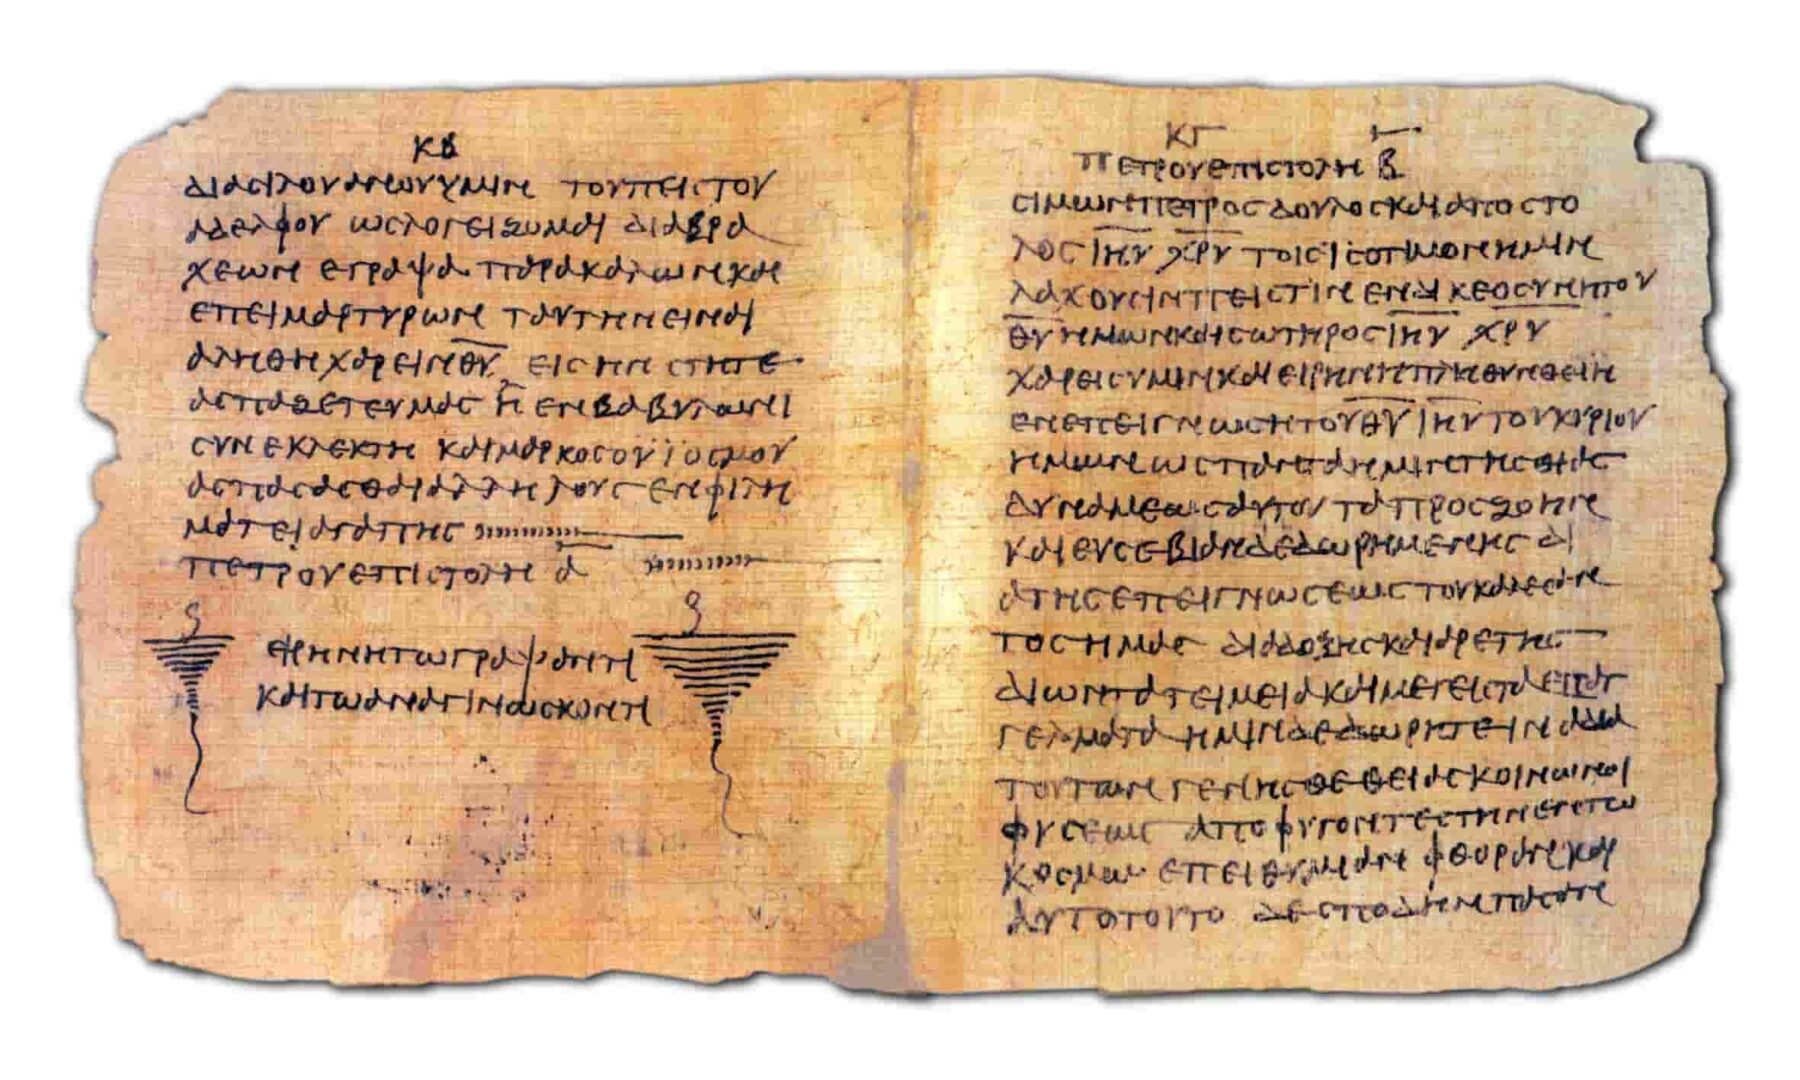 ΚΒ
ΔΙΑ ϹΙΛΟΥΑΝΟΥ ΥΜΙΝ ΤΟΥ ΠΕΙϹΤΟΥ
ΑΔΕΛΦΟΥ ΩϹ ΛΟΓΕΙΖΟΜΑΙ ΔΙΑ ΒΡΑ
ΧΕΩΝ ΕΓΡΑΨΑ ΠΑΡΑΚΑΛΩΝ ΚΑΙ
ΕΠΕΙΜΑΡΤΥΡΩΝ ΤΑΥΤΗΝ ΕΙΝΑΙ
ΑΛΗΘΗ ΧΑΡΕΙΝ ΘΥ ΕΙϹ ΗΝ ϹΤΗΤΕ
ΑϹΠΑΖΕΤΕ ΥΜΑϹ Η ΕΝ ΒΑΒΥΛΩΝΙ
ϹΥΝΕΚΛΕΚΤΗ ΚΑΙ ΜΑΡΚΟϹ Ο ΥΪΟϹ ΜΟΥ
ΑϹΠΑϹΑϹΘΑΙ ΑΛΛΗΛΟΥϹ ΕΝ ΦΙΛΗ
ΜΑΤΕΙ ΑΓΑΠΗϹ
ΠΕΤΡΟΥ ΕΠΙϹΤΟΛΗ Α
ΕΙΡΗΝΗ ΤΩ ΓΡΑΨΑΝΤΙ
ΚΑΙ ΤΩ ΑΝΑΓΙΝΩϹΚΟΝΤΙ
ΚΓ
ΠΕΤΡΟΥ ΕΠΙϹΤΟΛΗ Β
ϹΙΜΩΝ ΠΕΤΡΟϹ ΔΟΥΛΟϹ ΚΑΙ ΑΠΟϹΤΟ
ΛΟϹ ΙΗΥ ΧΡΥ ΤΟΙϹ ΙϹΟΤΙΜΟΝ ΗΜΙΝ
ΛΑΧΟΥϹΙΝ ΠΕΙϹΤΙΝ ΕΝ ΔΙΚΕΟϹΥΝΗ ΤΟΥ
ΘΥ ΗΜΩΝ ΚΑΙ ϹΩΤΗΡΟϹ ΙΗΥ ΧΡΥ
ΧΑΡΕΙϹ ΥΜΙΝ ΚΑΙ ΕΙΡΗΝΗ ΠΛΗΘΥΝΘΕΙΗ
ΕΝ ΕΠΕΙΓΝΩϹΗ ΤΟΥ ΘΥ ΙΗΥ ΤΟΥ ΚΥΡΙΟΥ
ΗΜΩΝ ΩϹ ΠΑΝΤΑ ΗΜΙΝ ΤΗϹ ΘΙΑϹ
ΔΥΝΑΜΕΩϹ ΑΥΤΟΥ ΤΑ ΠΡΟϹ ΖΩΗΝ
ΚΑΙ ΕΥϹΕΒΙΑΝ ΔΕΔΩΡΗΜΕΝΗϹ ΔΙ
Α ΤΗϹ ΕΠΕΙΓΝΩϹΕΩϹ ΤΟΥ ΚΑΛΕϹΑΝ
ΤΟϹ ΗΜΑϹ ΔΙΑ ΔΟΞΗϹ ΚΑΙ ΑΡΕΤΗϹ
ΔΙ ΩΝ ΤΑ ΤΕΙΜΕΙΑ ΚΑΙ ΜΕΓΕΙϹΤΑ ΕΠΑΓ
ΓΕΛΜΑΤΑ ΗΜΙΝ ΔΕΔΩΡΗΤΕ ΙΝΑ ΔΙΑ
ΤΟΥΤΩΝ ΓΕΝΗϹΘΕ ΘΕΙΑϹ ΚΟΙΝΩΝΟΙ
ΦΥϹΕΩϹ ΑΠΟΦΥΓΟΝΤΕϹ ΤΗΝ ΕΝ ΤΩ
ΚΟϹΜΩ ΕΠΕΙΘΥΜΙΑΝ ΦΘΟΡΑΝ ΚΑΙ
ΑΥΤΟ ΤΟΥΤΟ ΔΕ ϹΠΟΔΗΝ ΠΑϹΑΝ